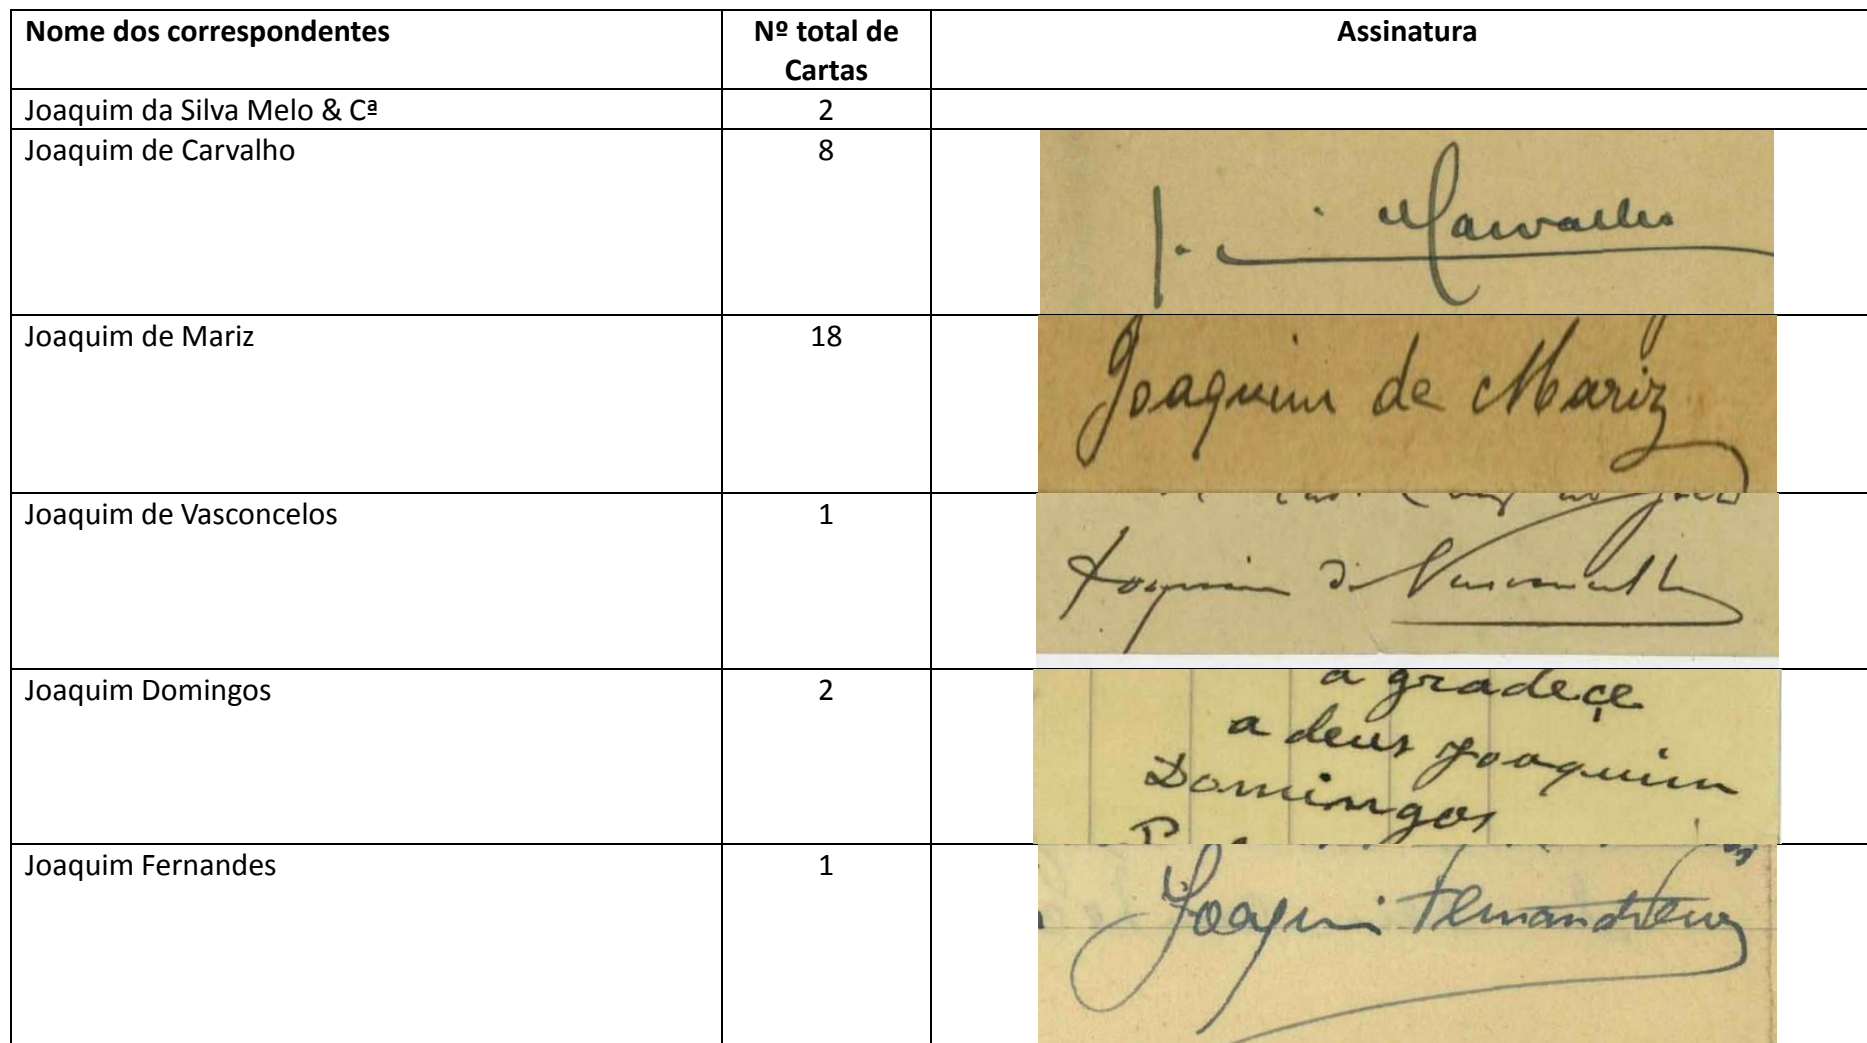 Nome dos correspondentes
Nº total de Cartas
Assinatura
Joaquim da Silva Melo & Cª
2
Joaquim de Carvalho
8
J. Carvalho
Joaquim de Mariz
18
Joaquim de Mariz
Joaquim de Vasconcelos
1
Joaquim de Vasconcellos
Joaquim Domingos
2
a gradeçe
a deus Joaquim
Domingos
Joaquim Fernandes
1
Joaquim